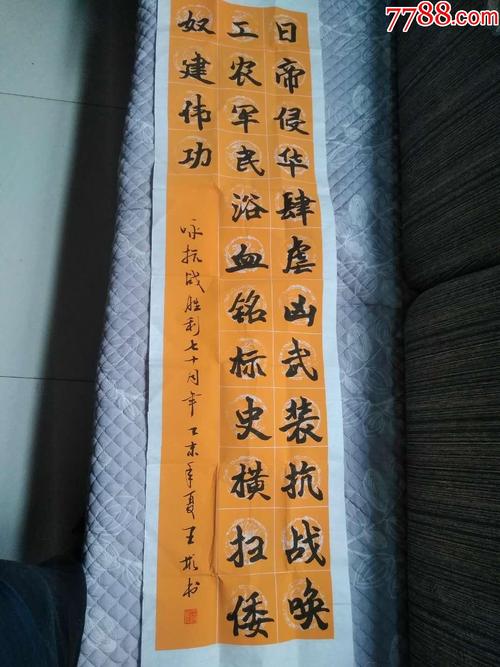 7788.com
中国收藏热线
日帝侵华肆虐凶武装抗战唤
工农军民浴血铭标史横扫倭
奴建伟功
咏抗战胜利七十周年 乙年夏王书